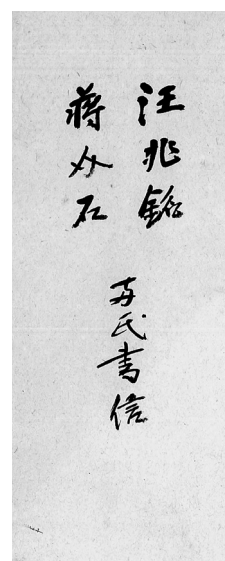 汪兆銘
蔣介石
兩氏書信